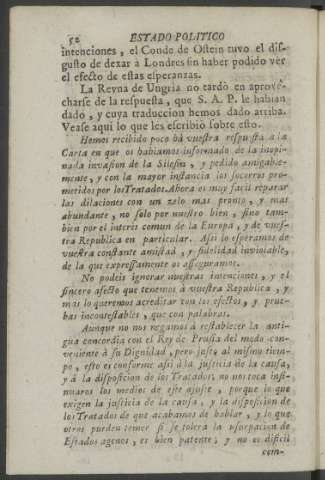 52 ESTADO POLITICO
intenciones, el Conde de Ostein tuvo el dis-
gusto de dexar à Londres sin haber podido vèr
el efecto de estas esperanzas.
La Reyna de Ungria no tardò en aprove-
charse de la respuesta, que S. A. P. le habian
dado, y cuya traduccion hemos dado arriba.
Vease aqui lo que les escribiò sobre esto.
Hemos recibido poco ha vuestra respuesta à la
Carta en que os habiamos informado de la inopi-
nada invasion de la Silesia, y pedido amigable-
mente, y con la mayor instancia los socorros pro-
metidos por los Tratados. Ahora es muy facil reparar
las dilaciones con un zelo mas pronto, y mas
abundante, no solo por nuestro bien, sino tam-
bien por el interès comun de la Europa, y de vues-
tra Republica en particular. Assi lo esperamos de
vuestra constante amistad, y fidelidad inviolable,
de la que expressamente os asseguramos.
No podeis ignorar nuestras intenciones, y el
sincero afecto que tenemos à vuestra Republica, y
mas lo queremos acreditar con los efectos, y prue-
bas incontestables, que con palabras.
Aunque no nos negamos à restablecer la anti-
gua concordia con el Rey de Prusia del modo con-
veniente à su Dignidad, pero justo al mismo tiem-
po, esto es conforme assi à la justicia de la causa,
y à la disposicion de los Tratados, no nos toca insi-
nuaros los medios de este ajuste, porque lo que
exigen la justicia de la causa, y la disposicion de
los Tratados de que acabamos de hablar, y lo que
otros pueden temer si se tolera la usurpacion de
Estados agenos, es bien patente; y no es dificil
com-